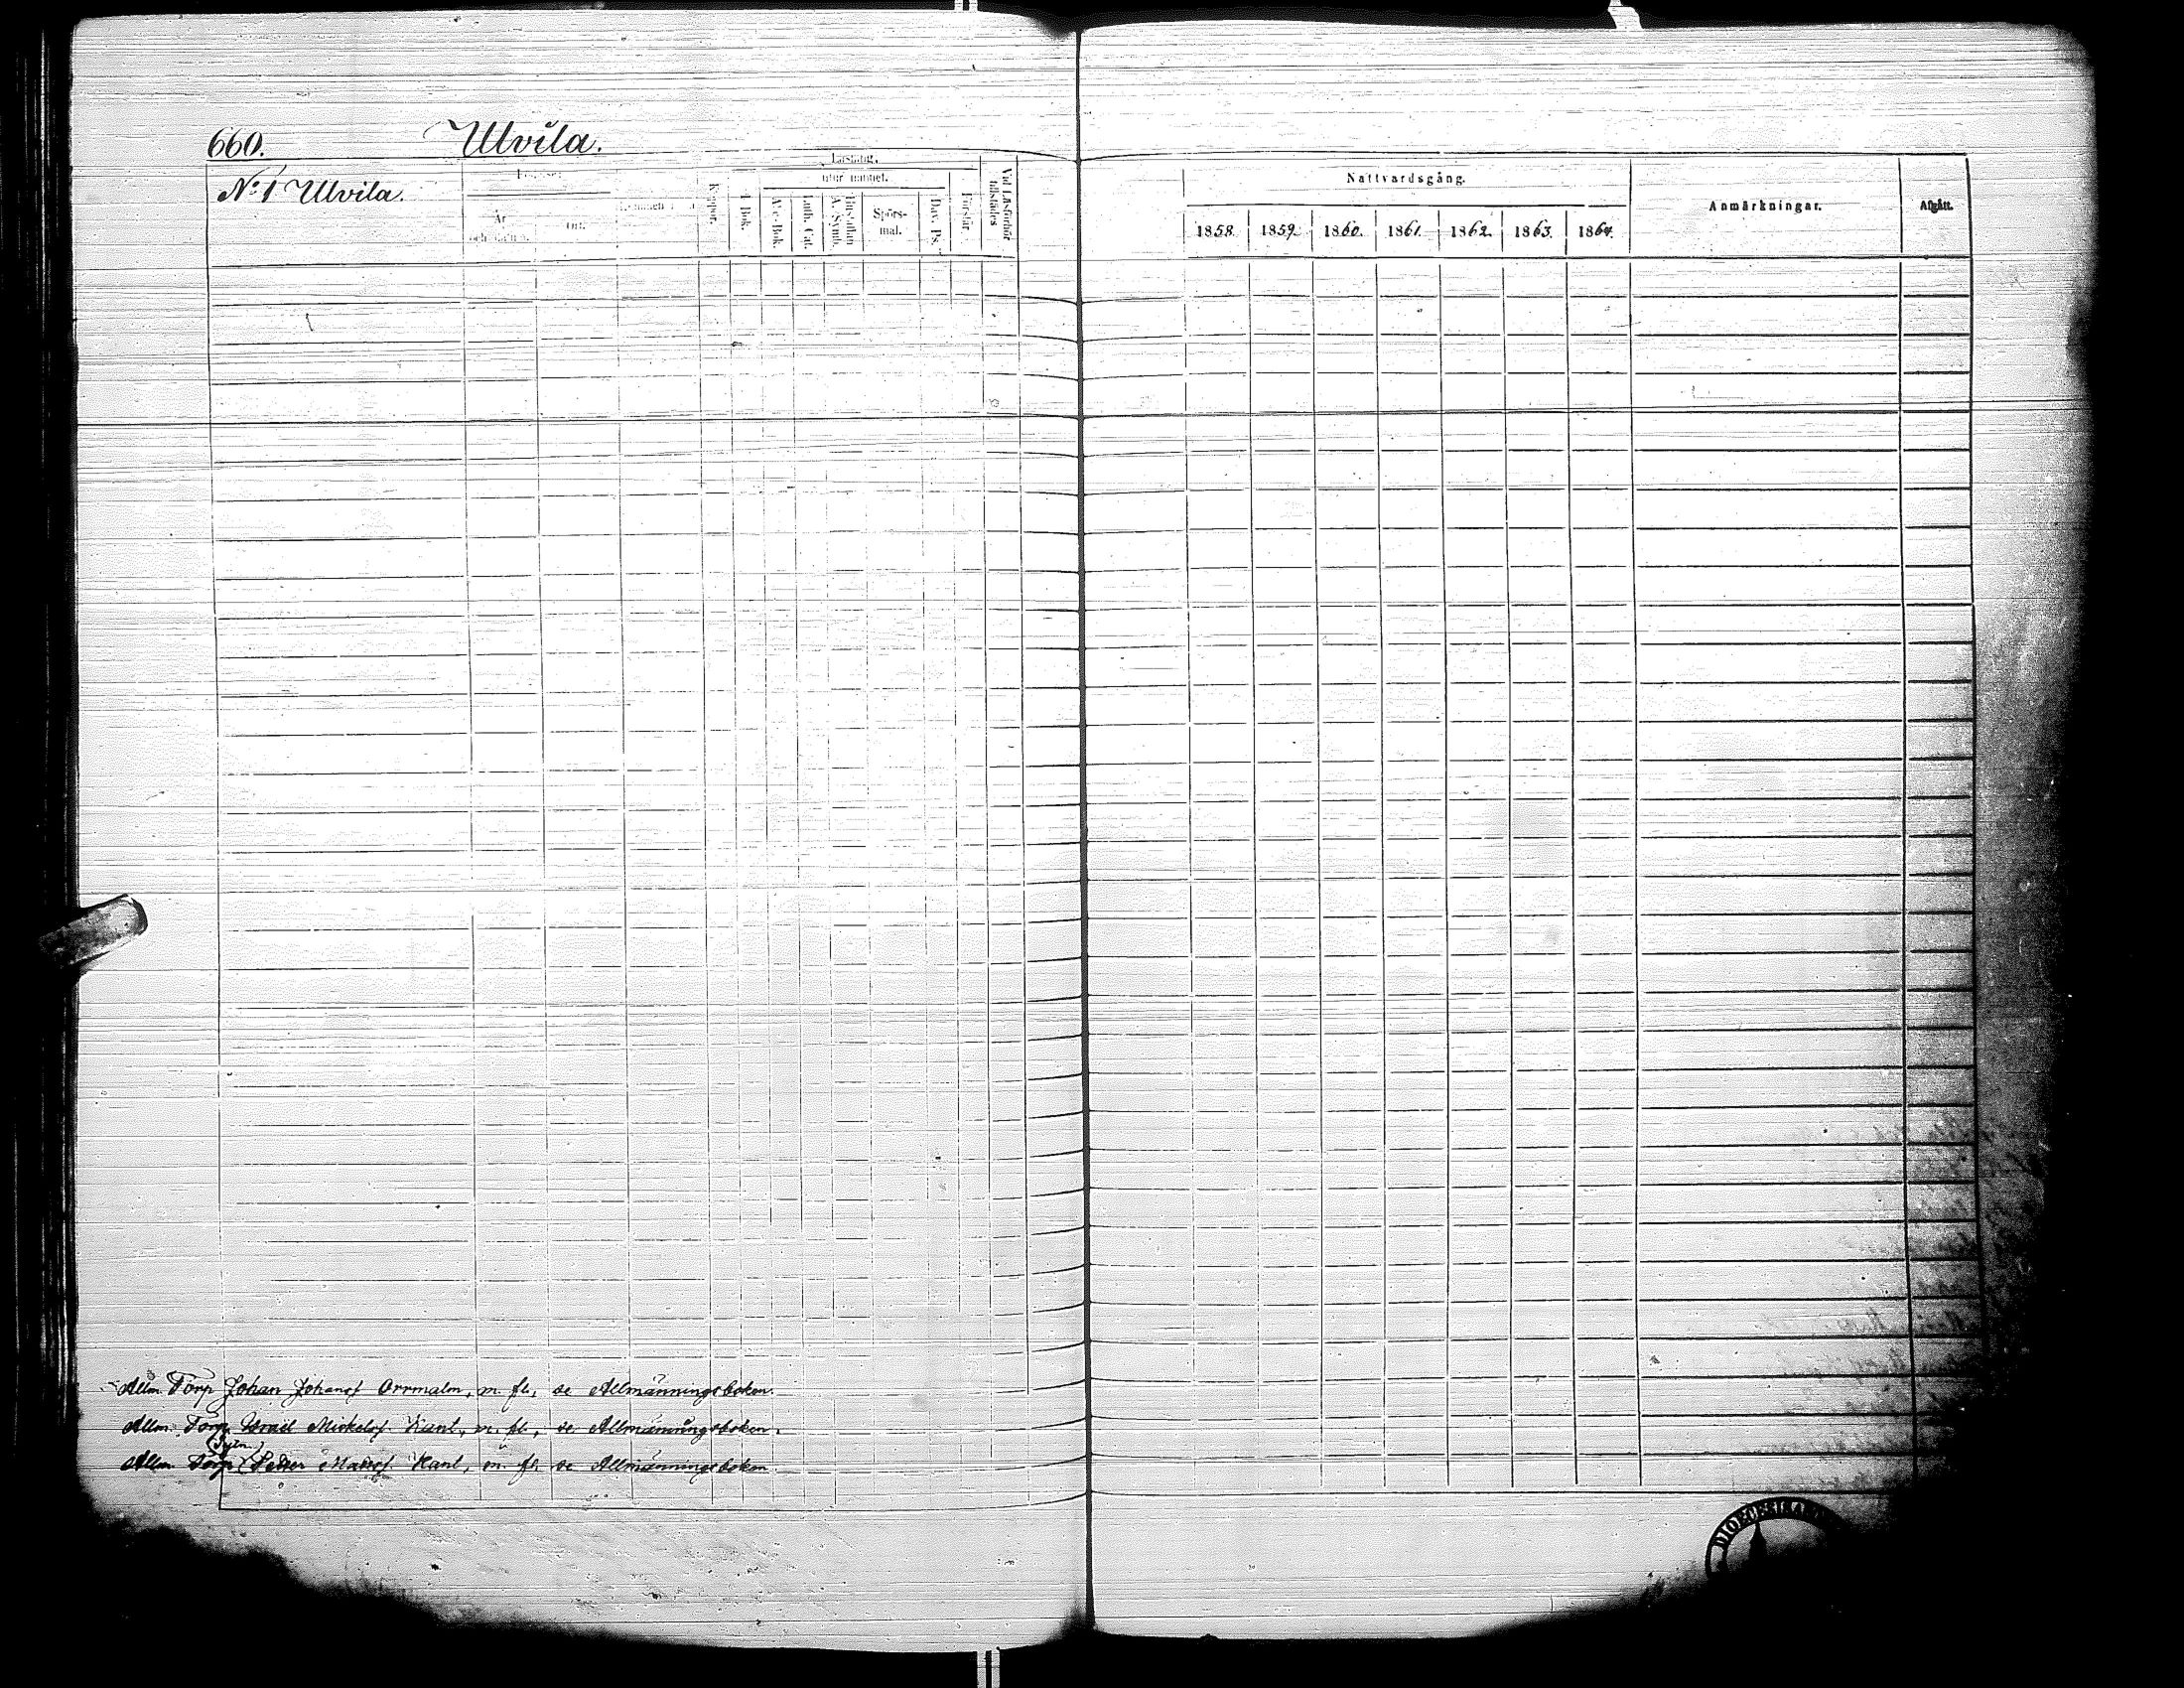 660. Ulvila.
N:o 1 Ulvila.
År
Ort.
Koppor.
Läsning.
utur minnet.
A. Bok.
A-b-c-Bok.
Luth. Cat.
Hustaflan
A. Symb.
Spörs-
mål.
Dav. Ps.
Förstår.
Vid Läsförhör
tillstädes
Nattvardsgång.
1858. 1859. 1860. 1861. 1862. 1863. 1864.
Anmärkningar.
Afgått.
Allm. Torp. Johan Johansf Orrmalm, m. fl., se Allmänningsboken.
Allm. Torp. Israel Mickelsf. Kant, m. fl., se Allmänningsboken.
Allm. Torp. Petter Matsf Kant, m. fl. se Allmänningsboken